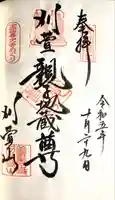 奉拝
令和五年
十月二十九日
刈萱親子地蔵尊
刈萱山